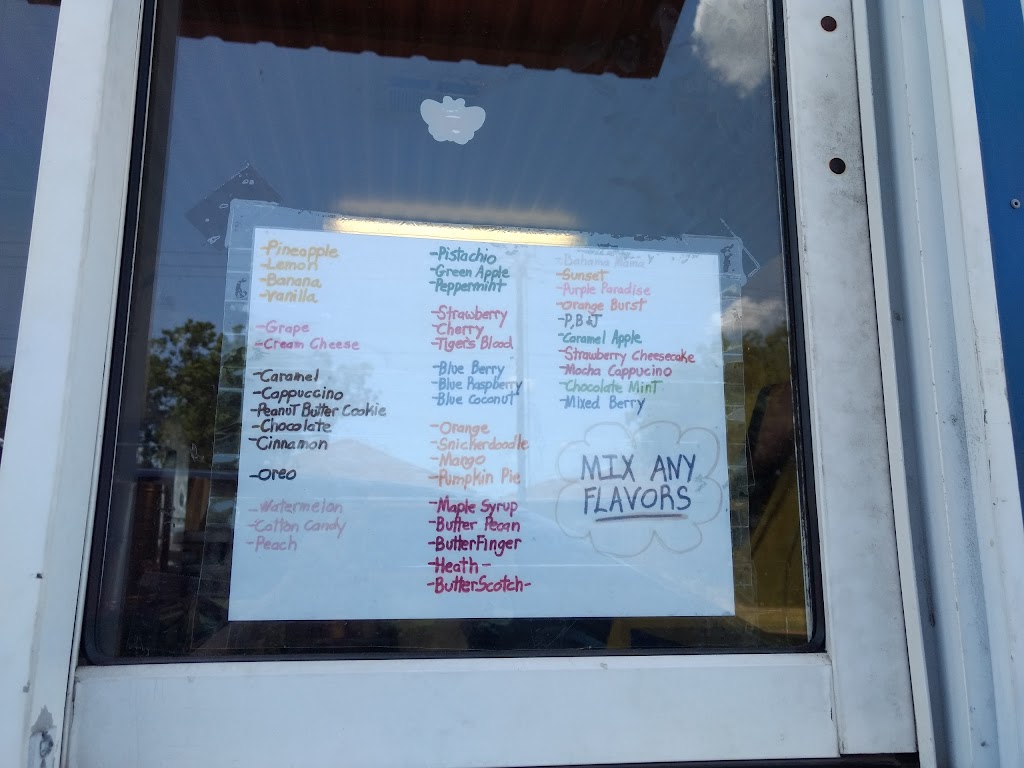 -Pineapple
-Lemon
-Banana
-Vanilla
-Grape
-Cream Cheese
-Caramel
-Cappuccino
-Peanut Butter Cookie
-Chocolate
-Cinnamon
-Oreo
-Watermelon
-Cotton Candy
-Peach
-Pistachio
-Green Apple
-Peppermint
-Strawberry
-Cherry
-Tiger's Blood
-Blue Berry
-Blue Raspberry
-Blue Coconut
-Orange
-Snickerdoodle
-Mango
-Pumpkin Pie
-Maple Syrup
-Butter Pecan
-ButterFinger
-Heath-
-ButterScotch-
-Bahama Mama
-Sunset
-Purple Paradise
-Orange Burst
-P,B&J
-Caramel Apple
-Strawberry Cheesecake
-Mocha Cappucino
-Chocolate Mint
-Mixed Berry
MIX ANY
FLAVORS